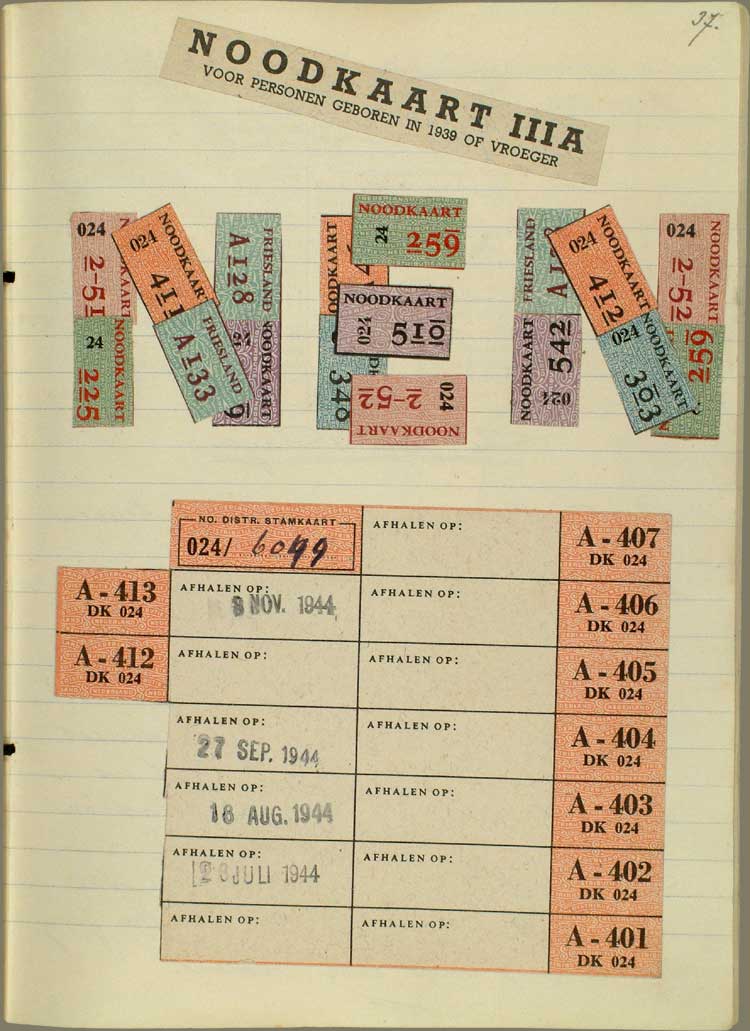 37.
NOODKAART IIIA
VOOR PERSONEN GEBOREN IN 1939 OF VROEGER
024
2-51
NOODKAART
24
225
NOODKAART
024
411
NOODKAART
A133
FRIESLAND
A128
FRIESLAND
NOODKAART
NOODKAART
NOODKAART
24
259
NOODKAART
024
510
024
2-52
NOODKAART
FRIESLAND
NOODKAART
542
024
024
412
NOODKAART
024
303
NOODKAART
024
2-52
NOODKAART
259
NO. DISTR. STAMKAART
024/ 6099
AFHALEN OP:
A - 407
DK 024
A - 413
DK 024
AFHALEN OP:
NOV. 1944
AFHALEN OP:
A - 406
DK 024
A - 412
DK 024
AFHALEN OP:
AFHALEN OP:
A - 405
DK 024
AFHALEN OP:
27 SEP. 1944
AFHALEN OP:
A - 404
DK 024
AFHALEN OP:
18 AUG. 1944
AFHALEN OP:
A - 403
DK 024
AFHALEN OP:
JULI 1944
AFHALEN OP:
A - 402
DK 024
AFHALEN OP:
AFHALEN OP:
A - 401
DK 024